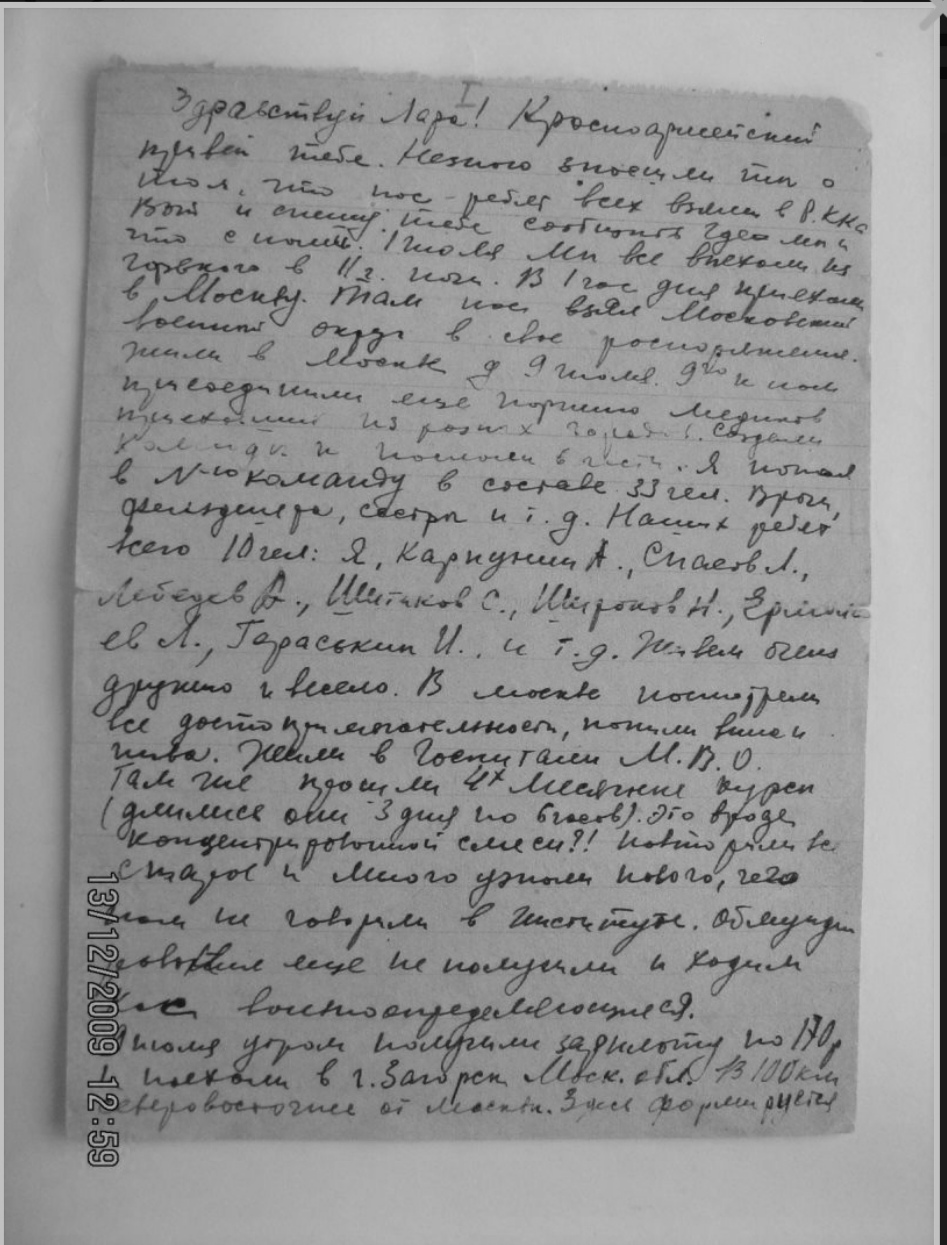 I
Здравствуй Лара! Красноармейский
привет тебе. Немного знаешь ли ты о
том, что нас-ребят всех взяли в Р.ККа
Вот и спешу тебе сообщить где мы и
что с нами. 1 июля мы все выехали из
Горького в 11 ч. ночи. В 1 час дня приехали
в Москву. Там нас взял Московский
военный округ в свое распоряжение.
Жили в Москве д 9 июля. 9го к нам
присоединили еще партию медиков
приехавших из разных городов. Создали
команды и послали в части. Я попал
в N-ую команду в составе 33 чел. Врачи,
фельдшера, сестры и т.д. Наших ребят
всего 10 чел: Я, Карпунин А., Спасов Л.,
Лебедев В., Шитиков С., Широков Н.,
ев Л., Гераськин И., и т.д. Живем очень
дружно и весело. В москве посмотрели
все достопримечательности, попили вина и
пива. Жили в Госпитали М.В.О.
Там же прошли 4х месячные курсы
(длились они 3 дня по 6 часов). Это вроде
концентрированной смеси?! Повторили все
старое и много узнали нового, чего
нам не говорили в институте. Обмунди
рования еще не получили и ходим
как вольноопределяющиеся.
июля утром получили зарплату по 170 р
и поехали в г. Загорск Моск. обл. В 100 км
северовосточнее от Москвы. Здесь формируется
13/12/2009 12:59